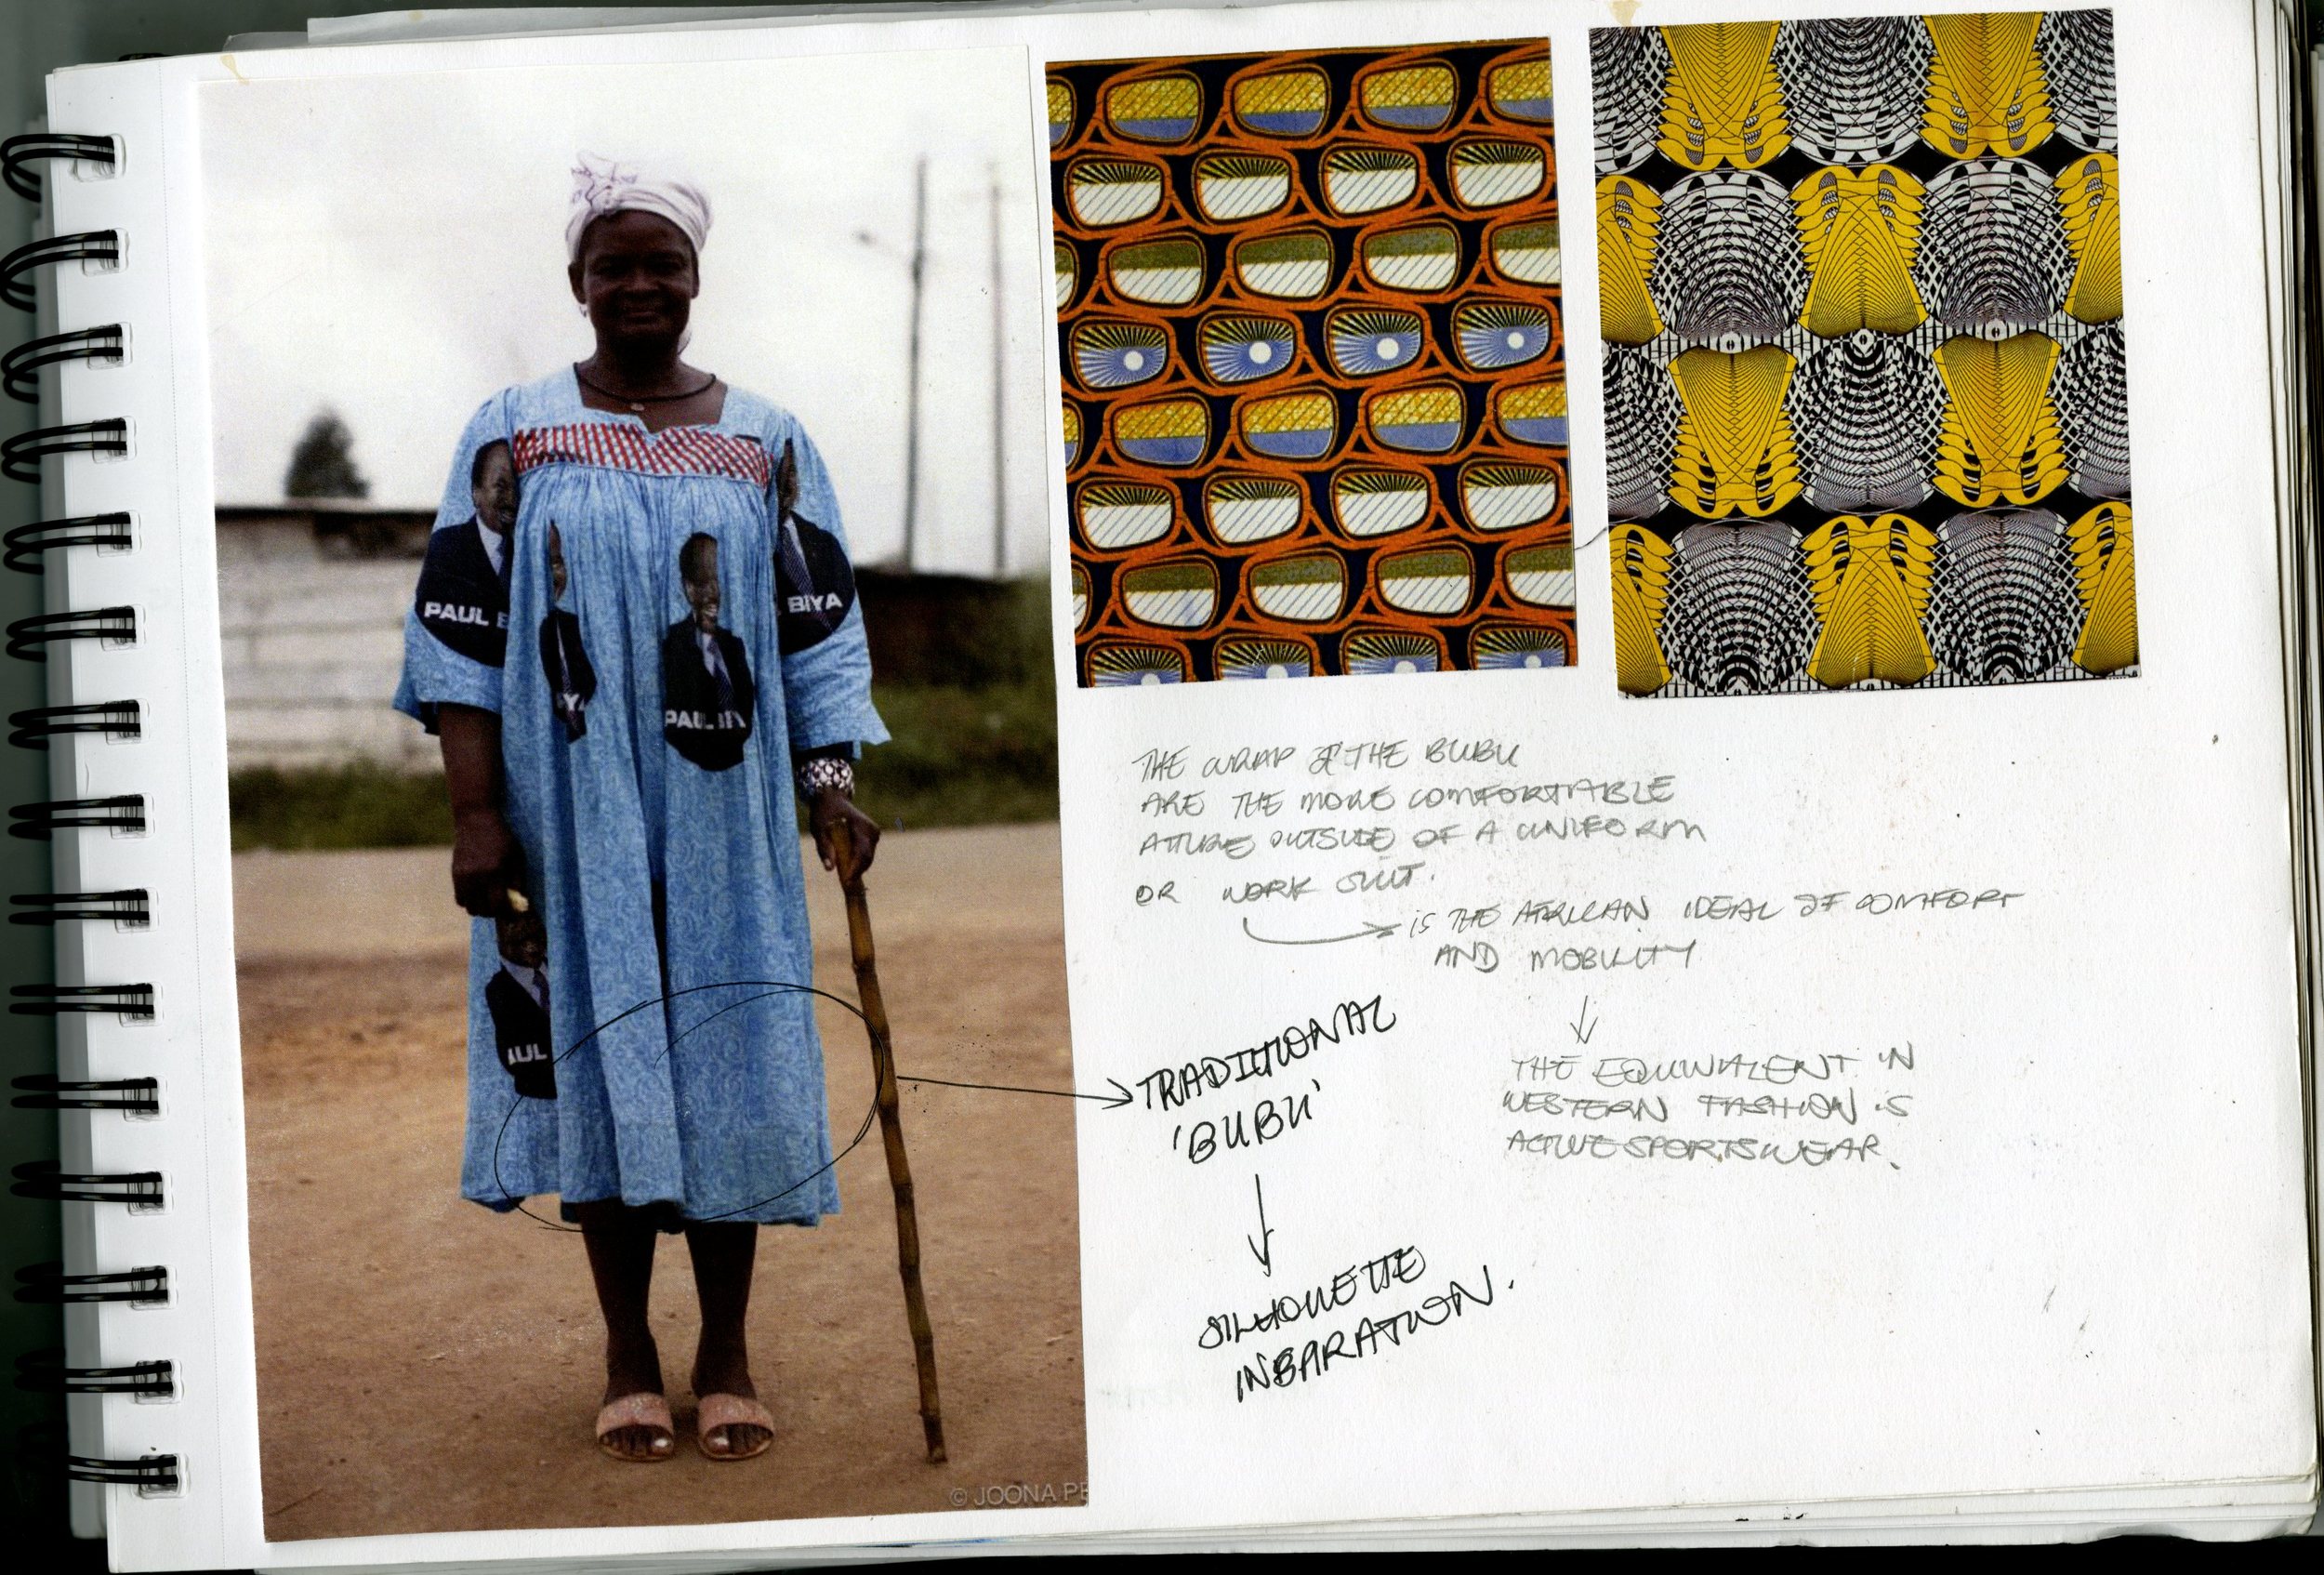 PAUL B
BIYA
YA
PAUL BIYA
AUL
© JOONA PE
THE WRAP & THE BUBU
ARE THE MORE COMFORTABLE
ATTURE OUTSIDE OF A UNIFORM
OR WORK SUIT.
IS THE AFRICAN IDEAL OF COMFORT
AND MOBILITY
THE EQUIVALENT IN
WESTERN FASHION IS
ACTIVE SPORTSWEAR.
TRADITIONAL
'BUBU'
SILHOUETTE
INSPARATION.